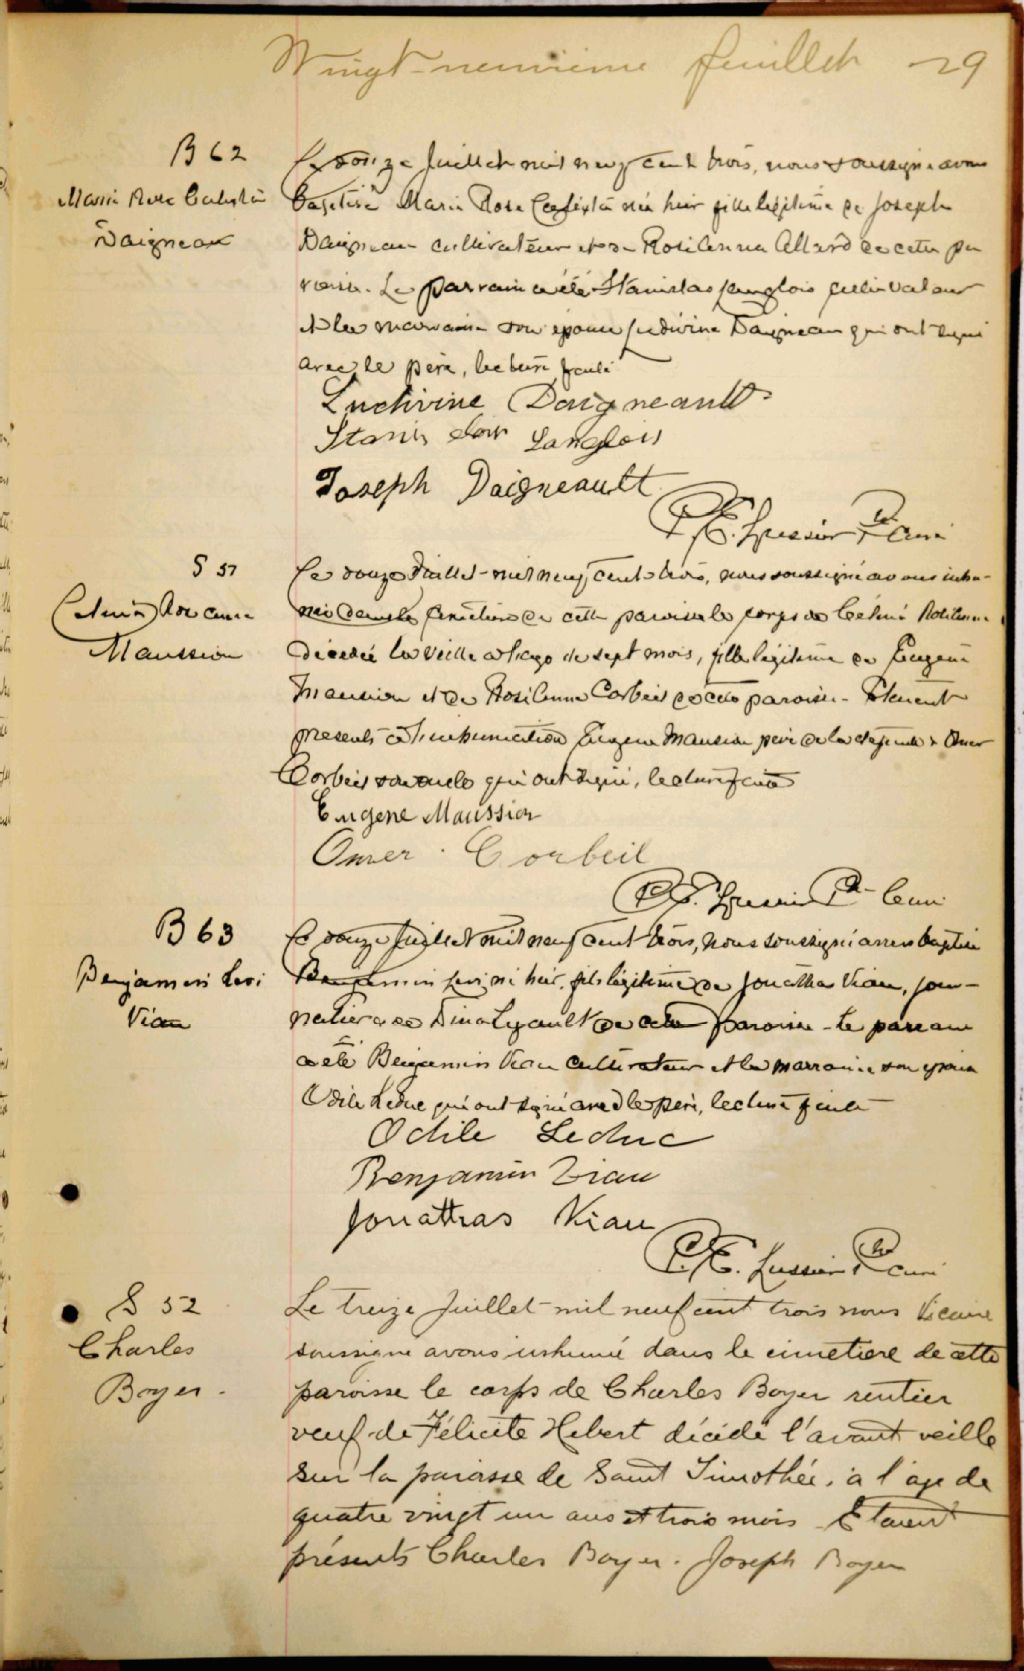 Vingt-neuvième feuillet 29
B 62
Marie Rose Calixta
Daigneau
Ce douze Juillet mil neuf cent trois, nous soussigné avons
baptisé Marie Rose Calixta née hier fille légitime de Joseph
Daigneau cultivateur et de Rosilenna Allard de cette pa
roisse. Le parrain a été Stanislas Langlois cultivateur
et la marraine son épouse Ludivine Daigneau qui ont signé
avec le père, lecture faite
Ludivine Daigneault
Stanis Langlois
Joseph Daigneault
P. E. Lussier Ptre Curé
S 51
Maussion
Ce douze Juillet mil neuf cent trois, nous soussigné avons inhu-
mé dans le cimetière de cette paroisse le corps de
décédée la veille à l'age de sept mois, fille légitime de Eugène
Maussion et de Rosilenna Corbeil de cette paroisse - Etaient
presents à l'inhumation Eugène Maussion père de la défunte & Omer
Corbeil son oncle qui ont signé, lecture faite
Eugene Maussion
Omer Corbeil
P. E. Lussier Ptre Curé
B 63
Benjamin Levi
Viau
Ce douze Juillet mil neuf cent trois, nous soussigné avons baptisé
Benjamin Levi né hier, fils légitime de Jonathas Viau, jour-
nalier & de Dina Lyault de cette paroisse - le parrain
a été Benjamin Viau cultivateur et la marraine son épouse
Odile Leduc qui ont signé avec le père, lecture faite
Odile Leduc
Benjamin Viau
Jonathas Viau
P. E. Lussier Ptre Curé
S 52
Charles
Boyer.
Le treize Juillet mil neuf cent trois nous Vicaire
soussigne avons inhumé dans le cimetiere de cette
paroisse le corps de Charles Boyer rentier
veuf de Félicité Hebert décédé l'avant veille
sur la paroisse de Saint Timothée, à l'age de
quatre vingt un ans et trois mois Etaient
présents Charles Boyer. Joseph Boyer